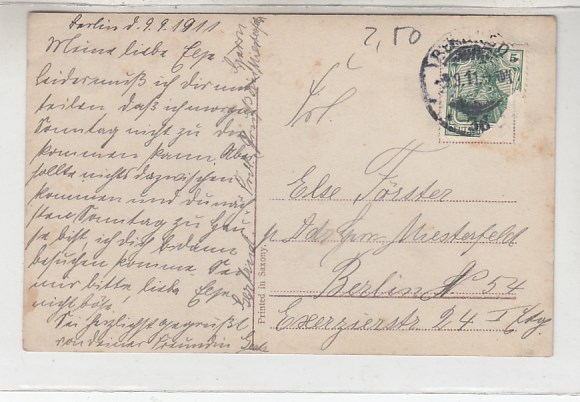 Berlin d. 9.9.1911
Meine liebe Else
leider muß ich dir mit
teilen daß ich morgen
Sonntag nicht zu dir
kommen kann. Aber
sollte nichts dazwischen
kommen und du näch
sten Sonntag zu Hau
se bist, ich dich dann
besuchen komme. Sei
nur bitte, liebe Else
nicht böse!
Sei herzlichst gegrüßt
von deiner Freundin
2,50
Frl.
Else Förster
Berlin No 54
Exerzierstr. 24 I Etg.
Printed in Saxony.
5